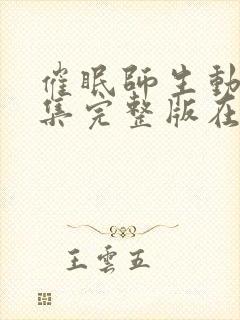 催眠師生動
集完整版在
王雲五